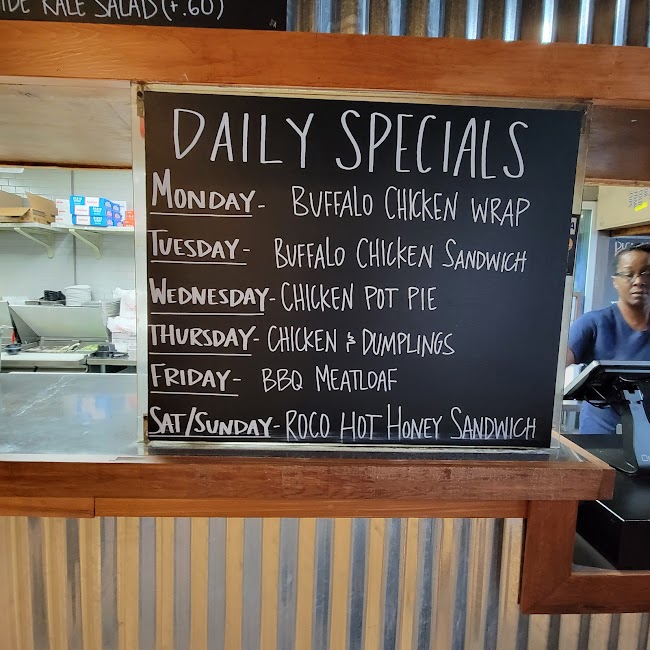 KALE SALAD (+.60)
DAILY SPECIALS
MONDAY - BUFFALO CHICKEN WRAP
TUESDAY - BUFFALO CHICKEN SANDWICH
WEDNESDAY - CHICKEN POT PIE
THURSDAY - CHICKEN & DUMPLINGS
FRIDAY - BBQ MEATLOAF
SAT/SUNDAY - ROCO HOT HONEY SANDWICH